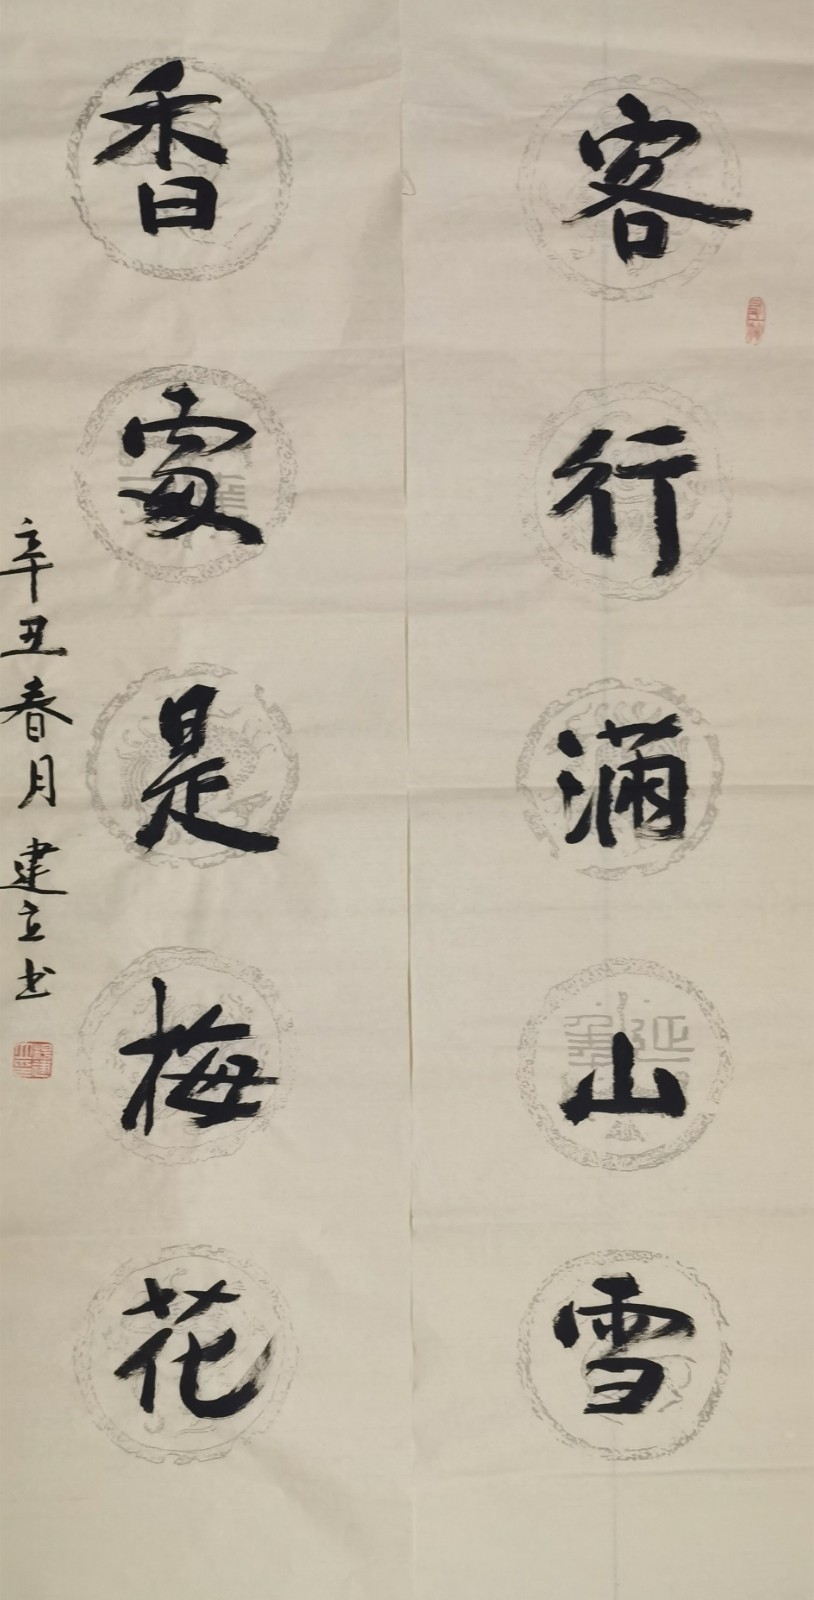 客行满山雪
香处是梅花
辛丑春月建立书